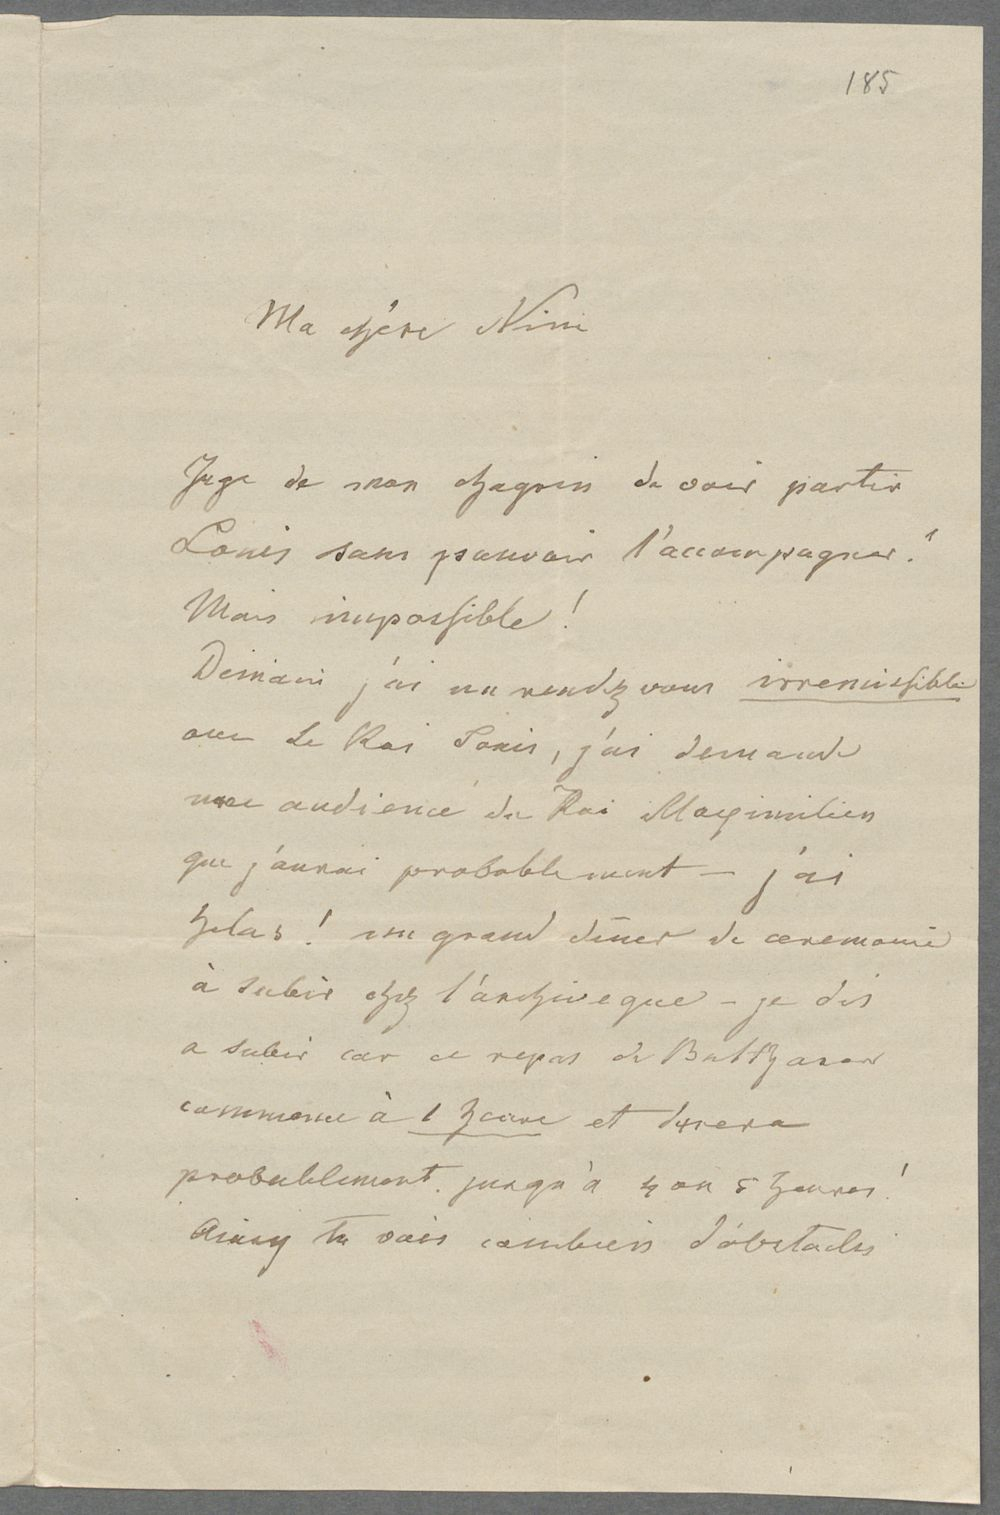 185
Ma chère Nini
Juge de mon chagrin de voir partir
Louis sans pouvoir l'accompagner!
Mais impossible!
Demain j'ai un rendez vous irremissible
avec le Roi Louis, j'ai demandé
une audience du Roi Maximilien
que j'aurai probablement – j'ai
helas! un grand dîner de ceremonie
à subir chez l'archiveque – je dis
a subir car ce repas de Balthazar
commence à 1 heure et durera
probablement jusqu'à 4 ou 5 heures!
Ainsy tu vois combien d'obstacles